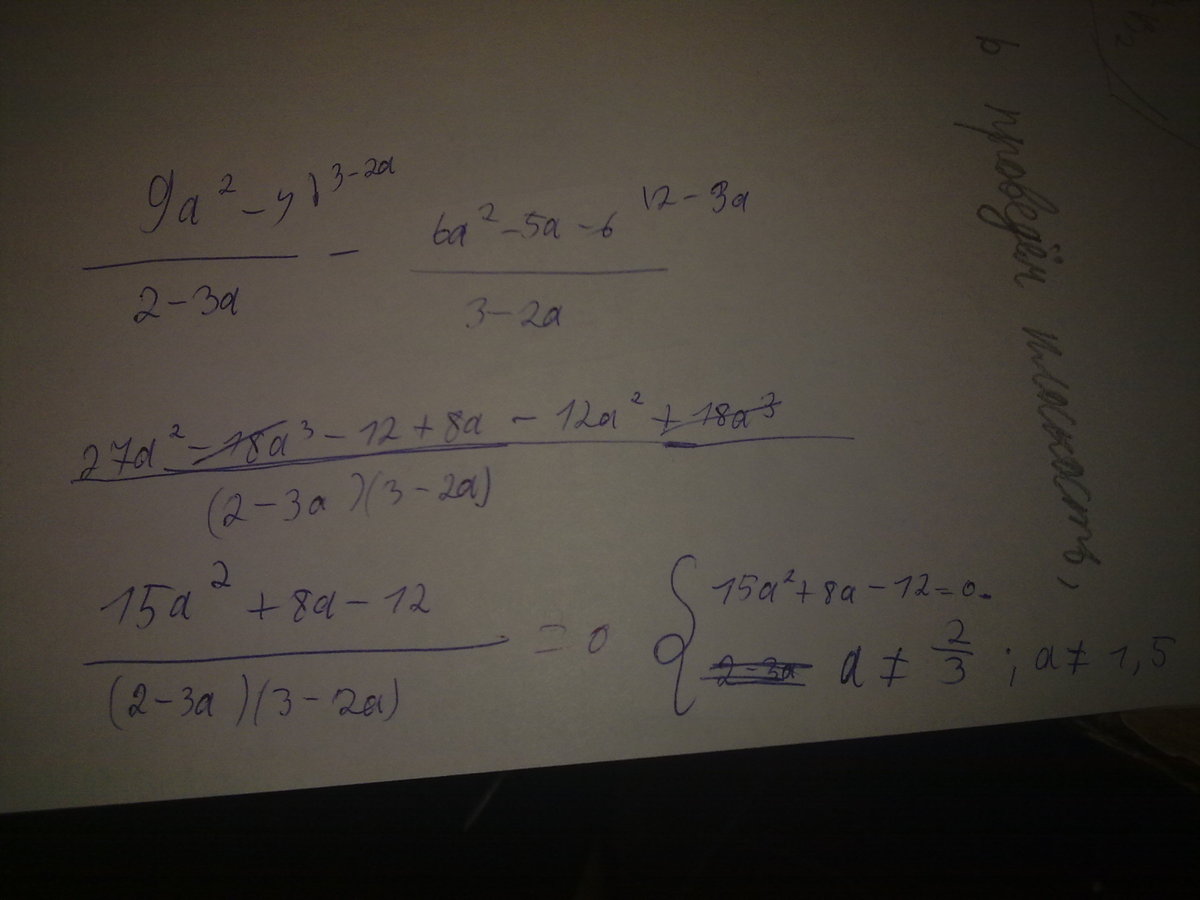 9a² - 4 ) 3-2a   6a² - 5a - 6   12 - 3a
—
2 - 3a   3 - 2a
27a² - 18a³ - 12 + 8a - 12a² + 18a³
(2 - 3a)(3 - 2a)
15a² + 8a - 12
= 0
(2 - 3a)(3 - 2a)
15a² + 8a - 12 = 0.
2-3a a ≠ 2/3 ; a ≠ 1,5
b проведём плоскость,